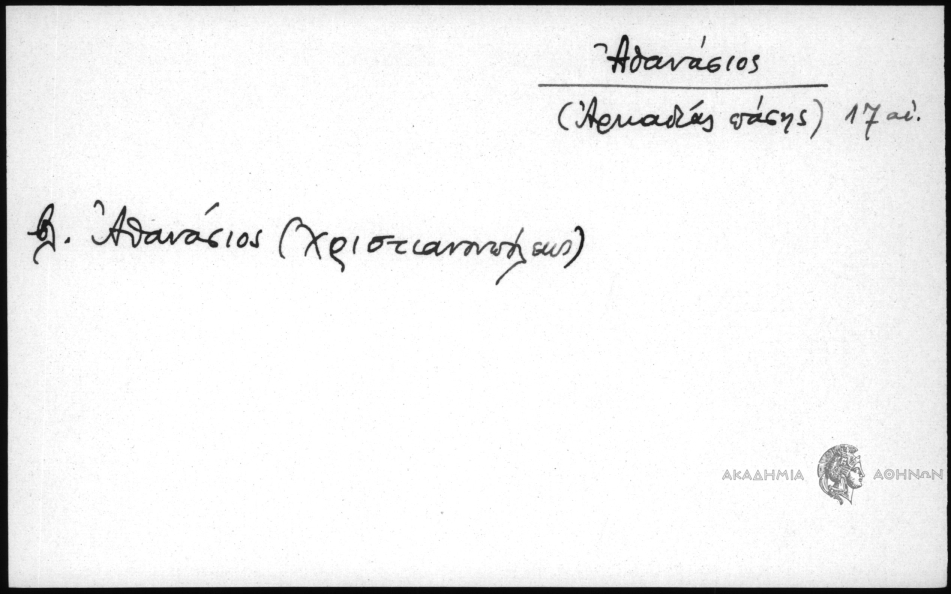 Ἀθανάσιος
(Ἀρκαδίας πάσης) 17 αἰ.
βλ. Ἀθανάσιος (Χριστιανουπόλεως)
ΑΚΑΔΗΜΙΑ ΑΘΗΝΩΝ